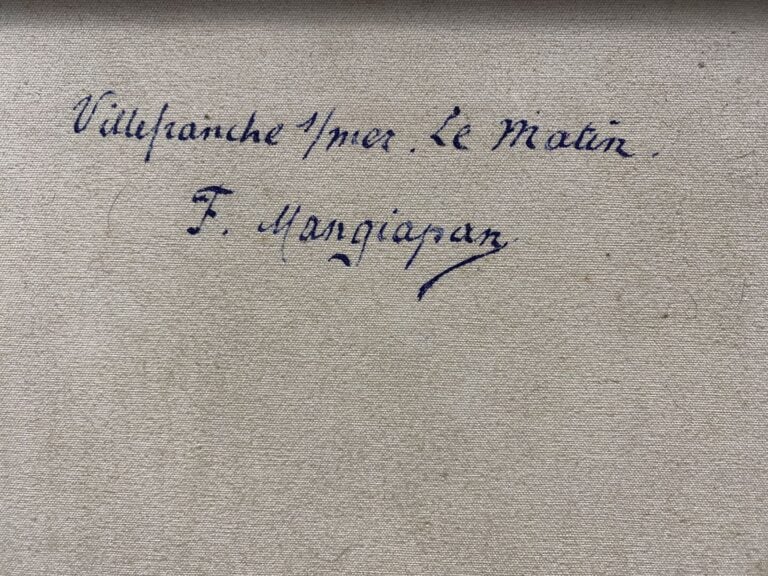 Villefranche s/mer. Le Matin.
F. Mangiapan